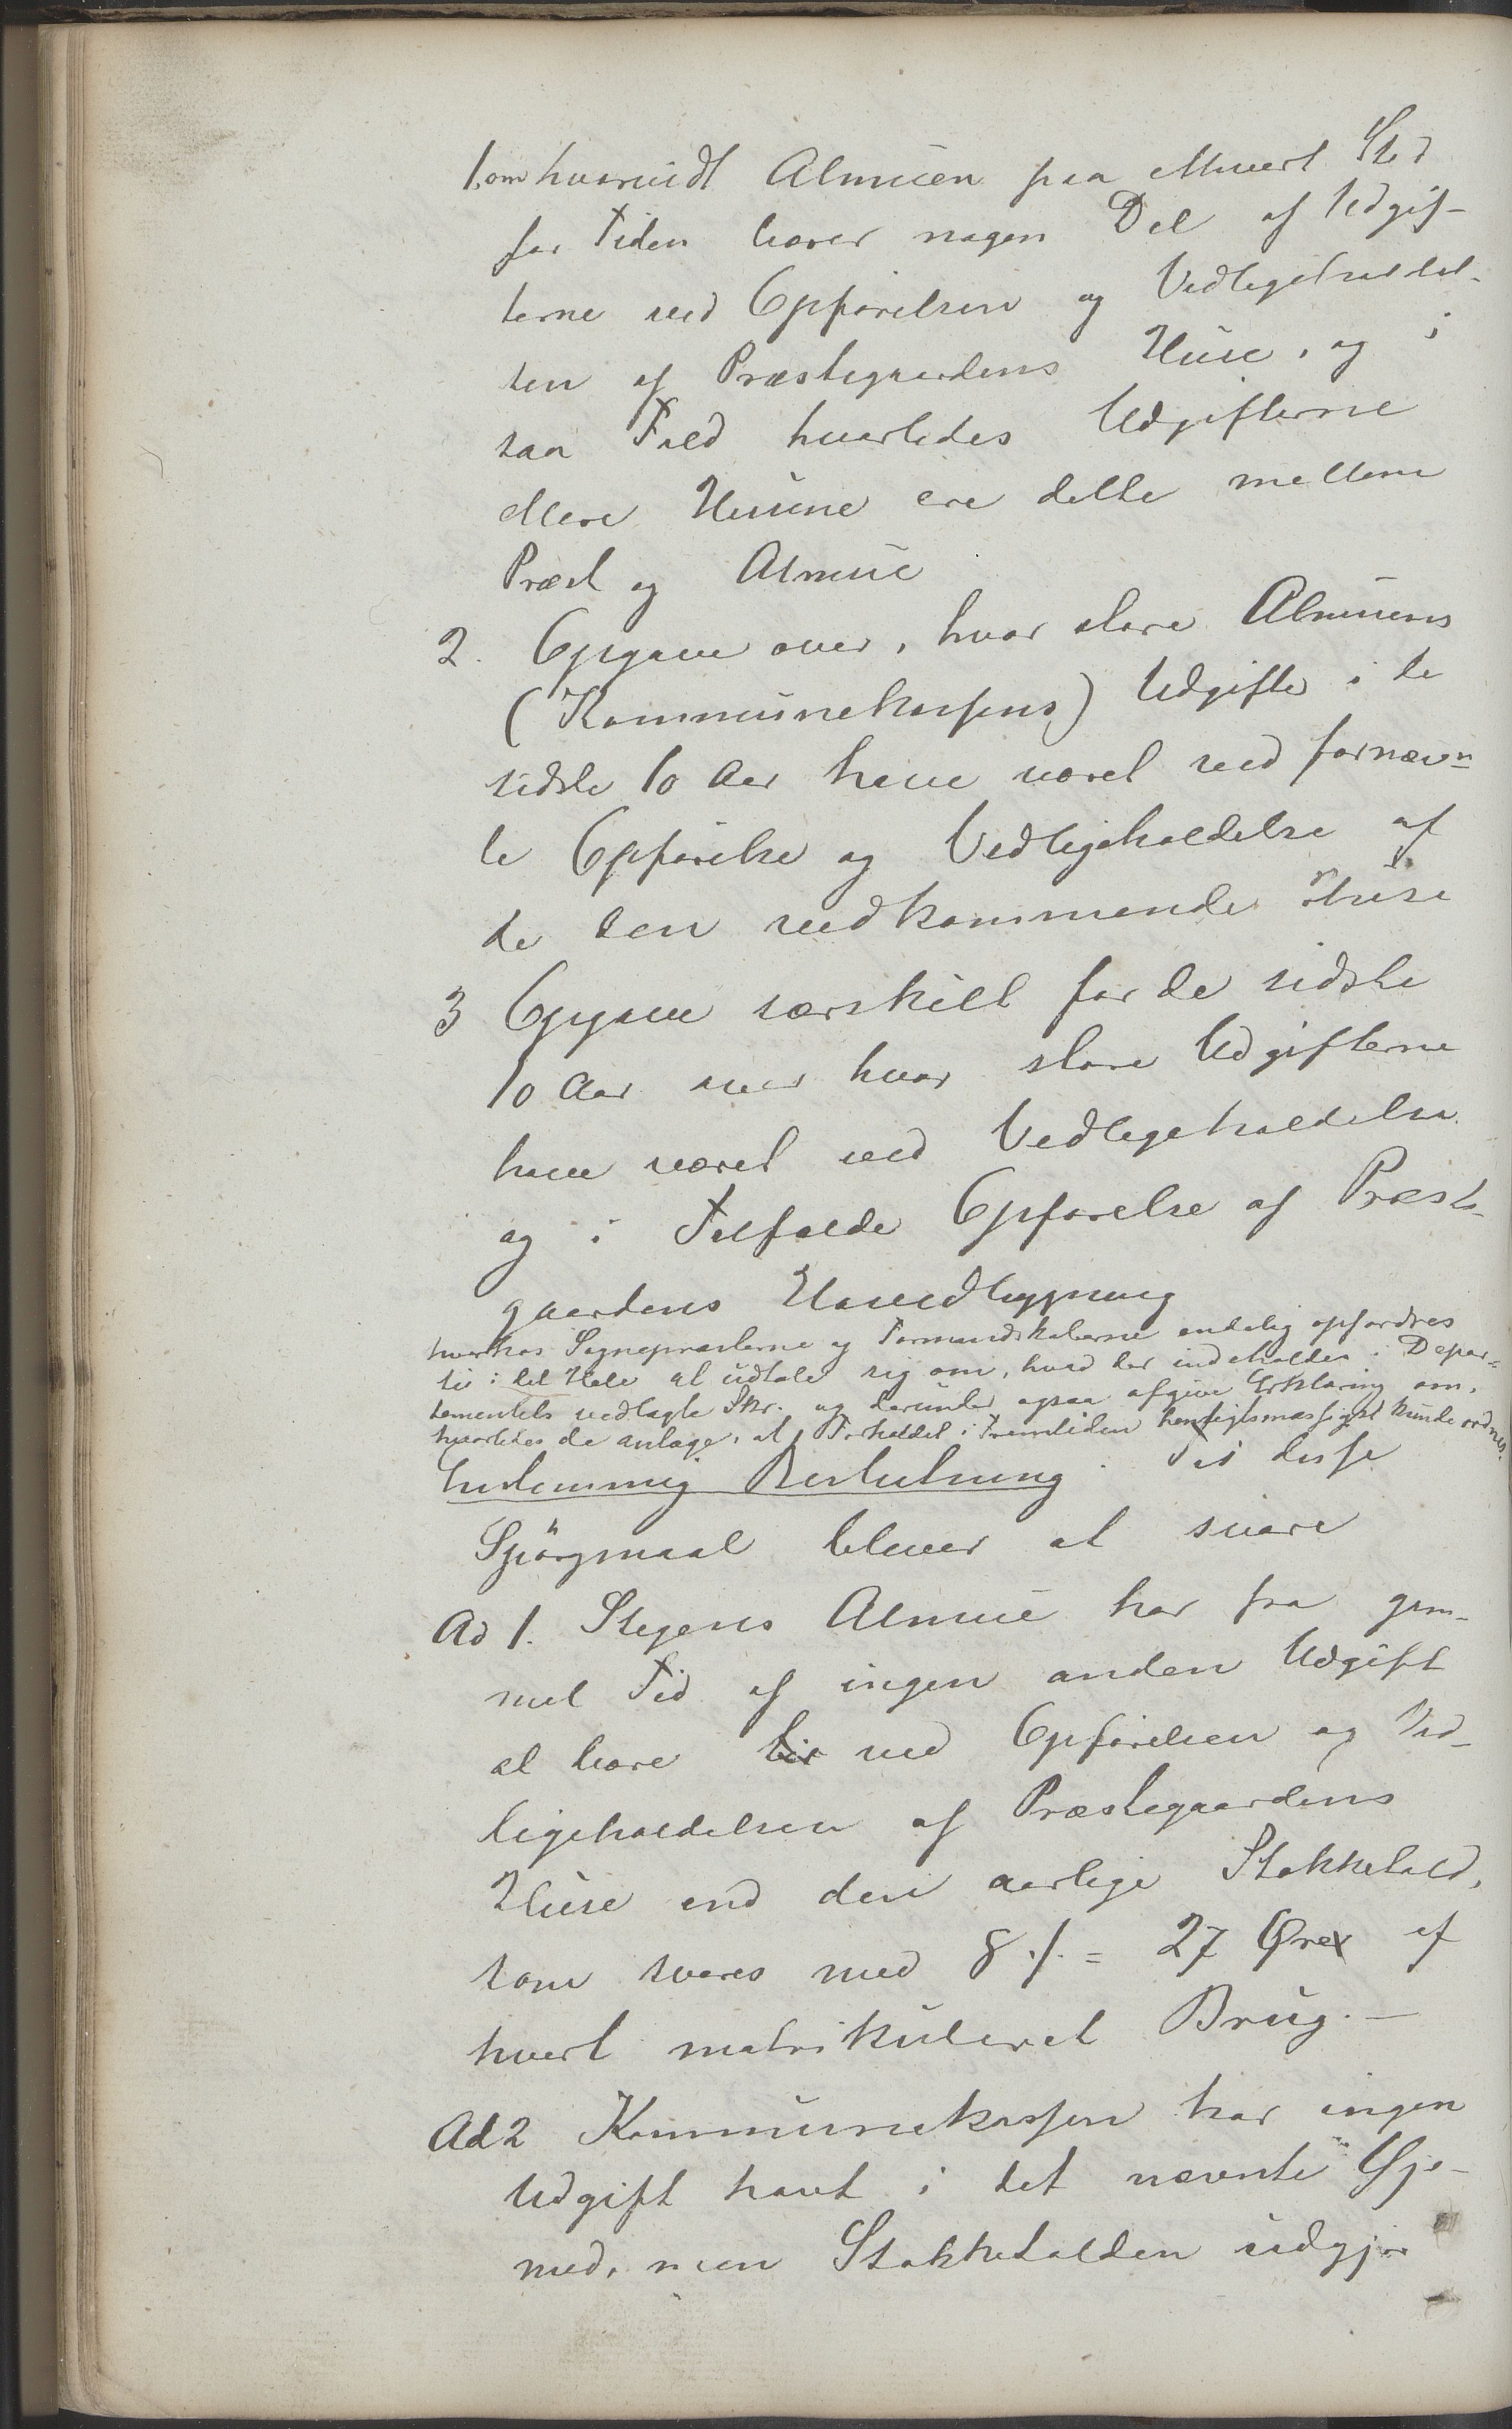 1, om hvorvidt Almuen paa ethvert Sted
for Tiden bærer nogen Del af Udgif-
terne ved Opførelsen og Vedligeholdel-
sen af Præstegaardens Huse, og i
saa Fald hvorledes Udgifterne
eller Husene ere delte mellem
Præst og Almue
2. Opgave over, hvor store Almuens
(Kommunekassens) Udgifter i de
sidste 10 Aar have været ved fornævn-
te Opførelse og Vedligeholdelse af
de den vedkommende Huse
3 Opgave særskilt for de sidste
10 Aar over hvor store Udgifterne
have været ved Vedligeholdelse
og i Tilfælde Opførelse af Præste-
gaardens Hovedbygning
hvorhos Sognepræsterne og Formandskaberne endelig opfordres
til i det Hele at udtale sig om, hvad der indeholdes i Depar-
tementets vedlagte Skr. og derunder ogsaa afgive Erklæring om,
hvorledes de antage, at Forholdet i Fremtiden hensigtsmæssigst kunde ordnes.
Enstemmig Beslutning. Til disse
Spörgmaal bliver at svare
Ad 1. Stegens Almue har fra gam-
mel Tid af ingen anden Udgift
at bære til ved Opførelsen og Ved-
ligeholdelsen af Præstegaardens
Huse end den aarlige Stokketold,
som svares med 8 s. = 27 Øre af
hvert matrikuleret Brug. —
Ad 2 Kommunekassen har ingen
Udgift havt i det nævnte Øje-
med, men Stokketolden udgjør